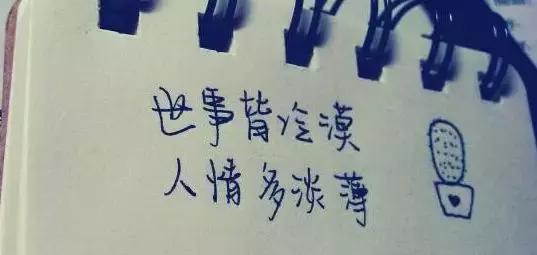 世事皆冷漠
人情多淡薄